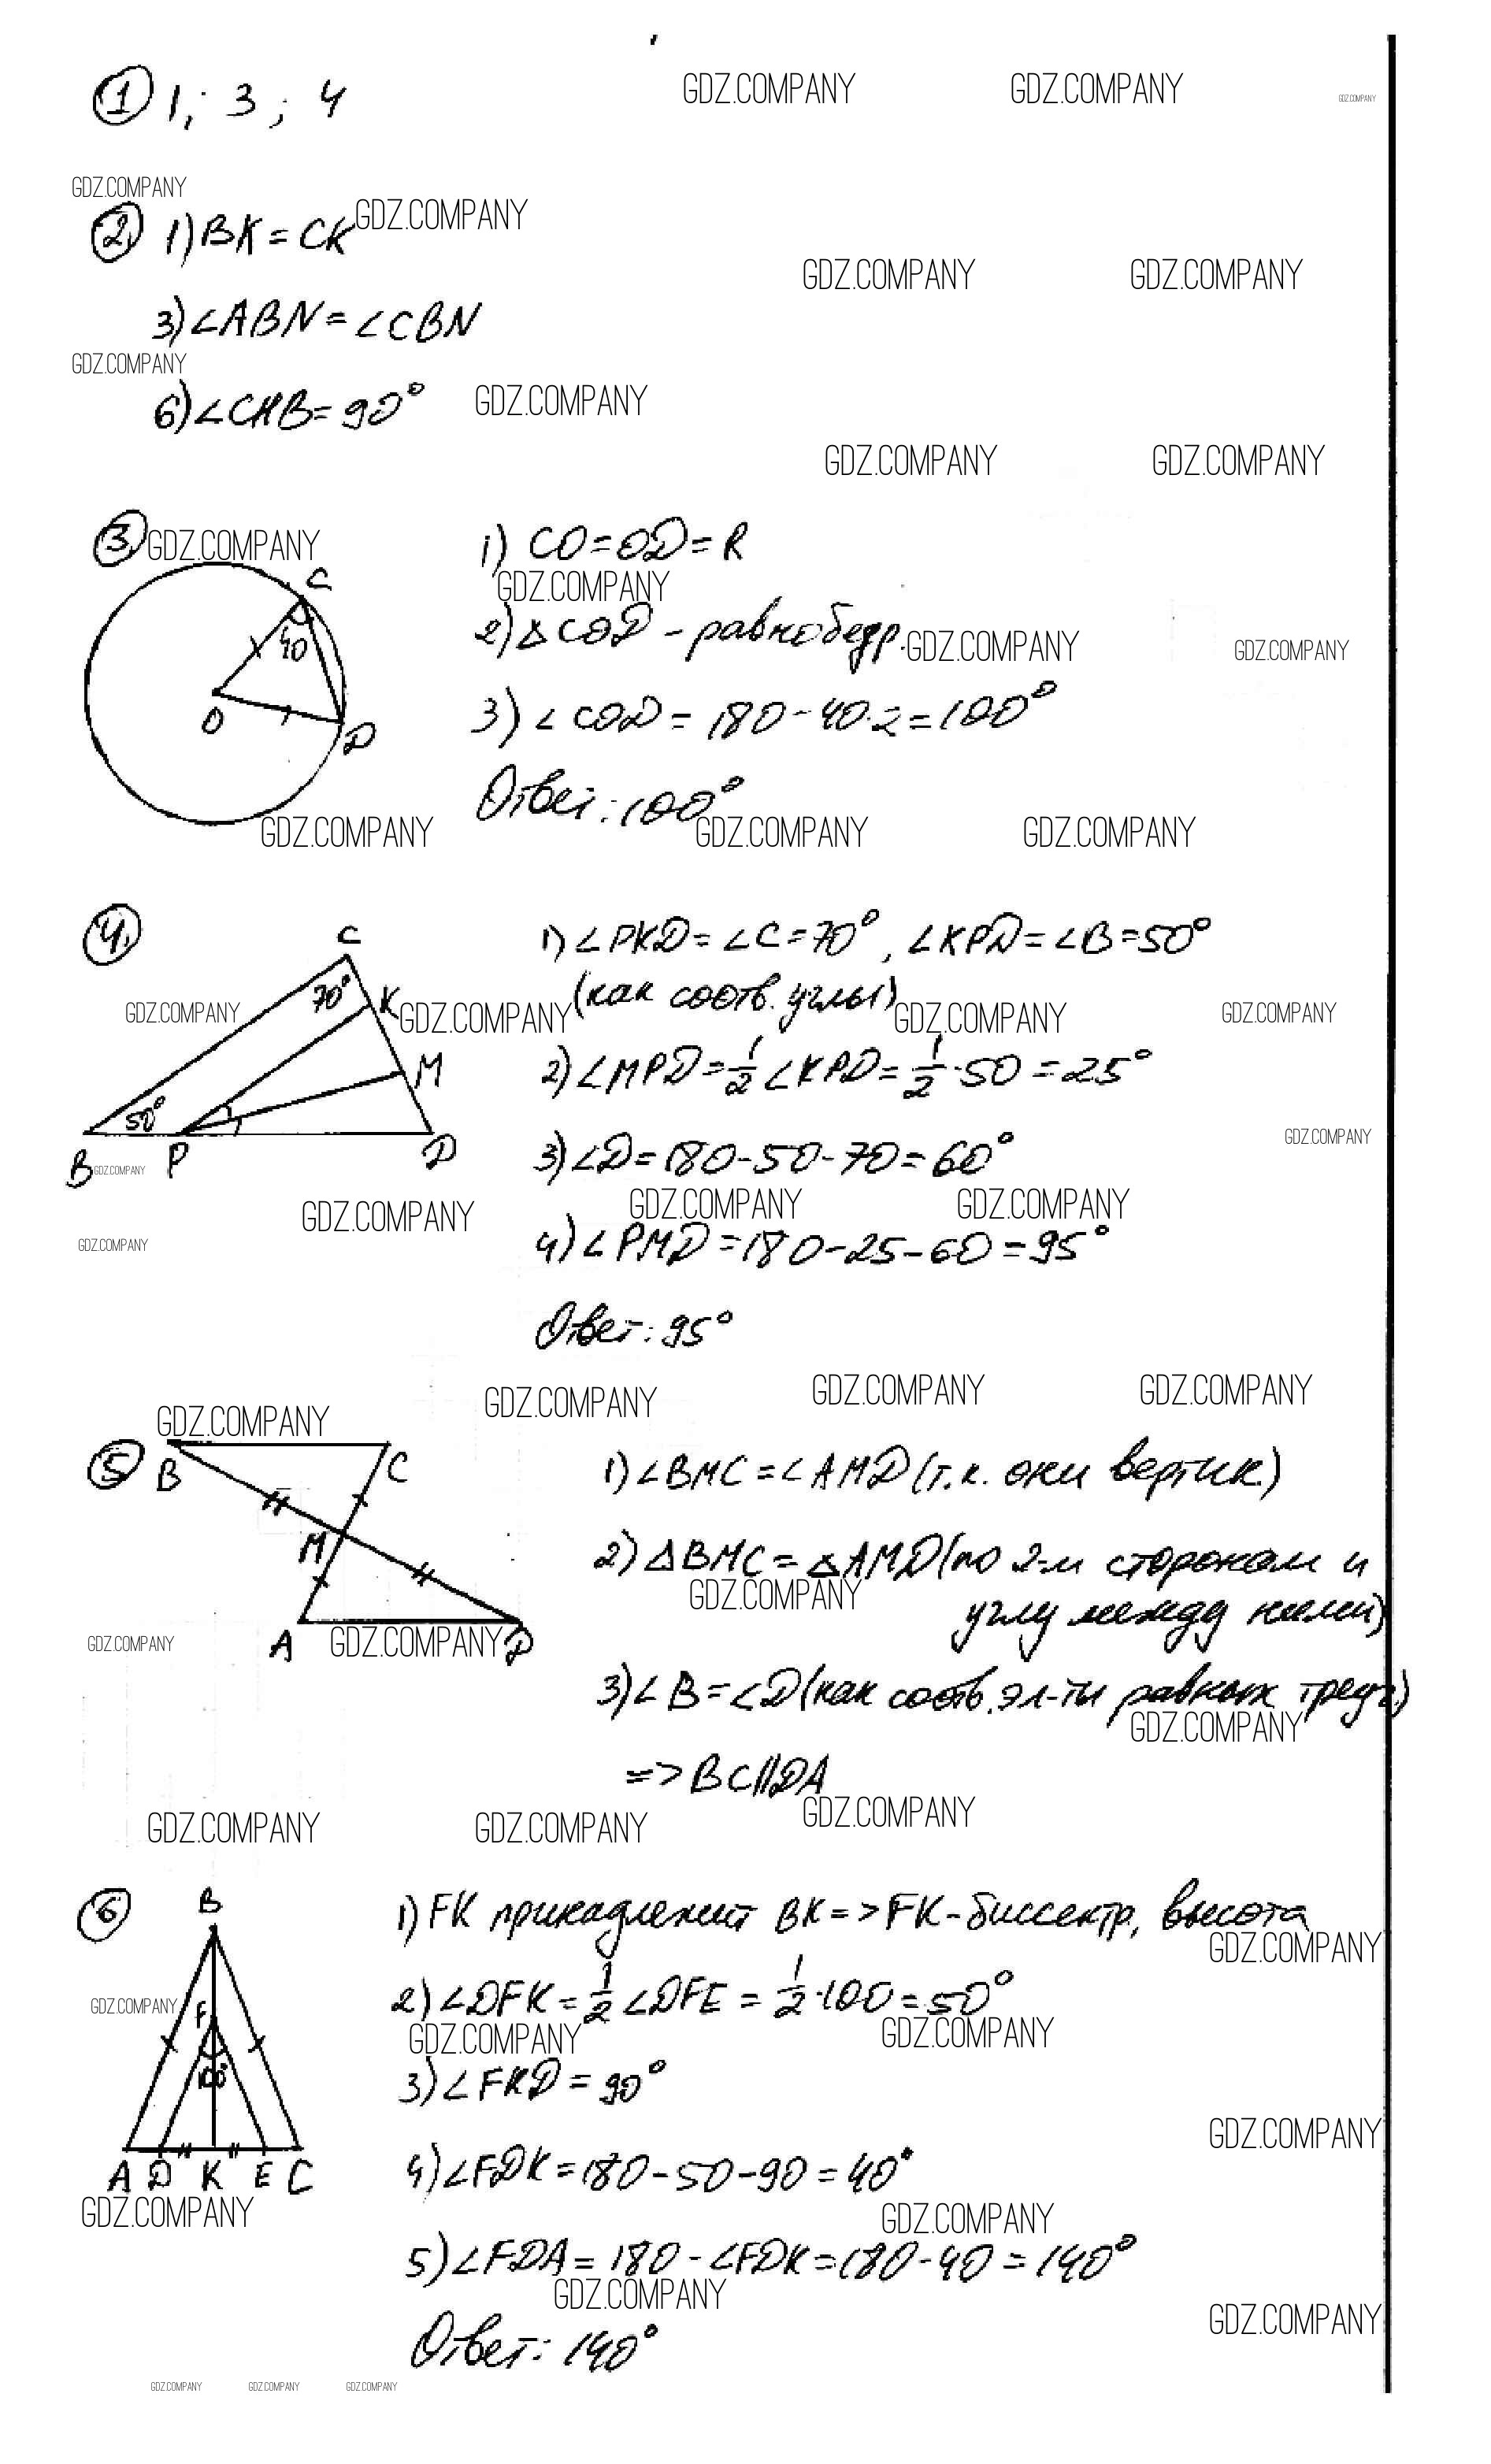 GDZ.COMPANY GDZ.COMPANY GDZ.COMPANY
① 1; 3; 4
GDZ.COMPANY
② 1) BK = CK GDZ.COMPANY
GDZ.COMPANY GDZ.COMPANY
3) ∠ABN = ∠CBN
GDZ.COMPANY
6) ∠CHB = 90° GDZ.COMPANY
GDZ.COMPANY GDZ.COMPANY
③ GDZ.COMPANY
C
40
O
D
1) CO = OD = R
GDZ.COMPANY
2) △COD - равнобедр. GDZ.COMPANY GDZ.COMPANY
3) ∠COD = 180 - 40·2 = 100°
Ответ: 100°
GDZ.COMPANY GDZ.COMPANY GDZ.COMPANY
④
C
70° K
M
50°
B P D
1) ∠PKD = ∠C = 70°, ∠KPD = ∠B = 50°
(как соотв. углы)
GDZ.COMPANY GDZ.COMPANY GDZ.COMPANY GDZ.COMPANY
2) ∠MPD = 1/2 ∠KPD = 1/2 · 50 = 25°
GDZ.COMPANY
3) ∠D = 180 - 50 - 70 = 60°
GDZ.COMPANY
GDZ.COMPANY GDZ.COMPANY GDZ.COMPANY
GDZ.COMPANY
4) ∠PMD = 180 - 25 - 60 = 95°
Ответ: 95°
GDZ.COMPANY GDZ.COMPANY GDZ.COMPANY GDZ.COMPANY
⑤
B C
M
A D
1) ∠BMC = ∠AMD (т.к. они вертик.)
2) △BMC = △AMD (по 2-м сторонам и
GDZ.COMPANY
углу между ними)
GDZ.COMPANY GDZ.COMPANY
3) ∠B = ∠D (как соотв. эл-ты равных треуг.)
GDZ.COMPANY
=> BC||DA
GDZ.COMPANY GDZ.COMPANY GDZ.COMPANY
⑥
B
F
100°
A D K E C
1) FK принадлежит BK => FK - биссектр, высота
GDZ.COMPANY
2) ∠DFK = 1/2 ∠DFE = 1/2 · 100 = 50°
GDZ.COMPANY GDZ.COMPANY GDZ.COMPANY
3) ∠FKD = 90°
GDZ.COMPANY
4) ∠FDK = 180 - 50 - 90 = 40°
GDZ.COMPANY GDZ.COMPANY
5) ∠FDA = 180 - ∠FDK = 180 - 40 = 140°
GDZ.COMPANY GDZ.COMPANY
Ответ: 140°
GDZ.COMPANY GDZ.COMPANY GDZ.COMPANY